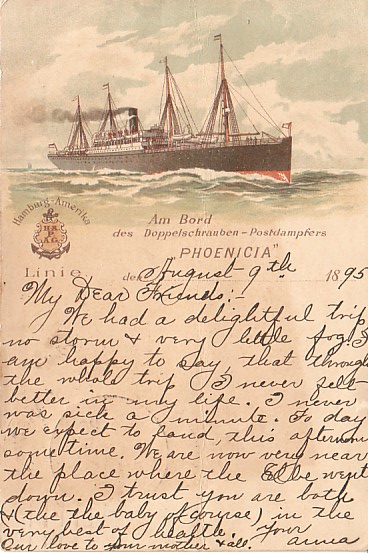 Hamburg-Amerika
HA
P
A.G.
Linie
Am Bord
des Doppelschrauben-Postdampfers
"PHOENICIA"
den August 9th 1895
My Dear Friends:-
We had a delightful trip
no storm & very little fog. I
am happy to say, that through
the whole trip I never felt
better in my life. I never
was sick a minute. To day
we expect to land, this afternoon
sometime. We are now very near
the place where the Elbe went
down. I trust you are both
& (the the baby of course) in the
very best of health. Your
Our love to your mother & all. anna